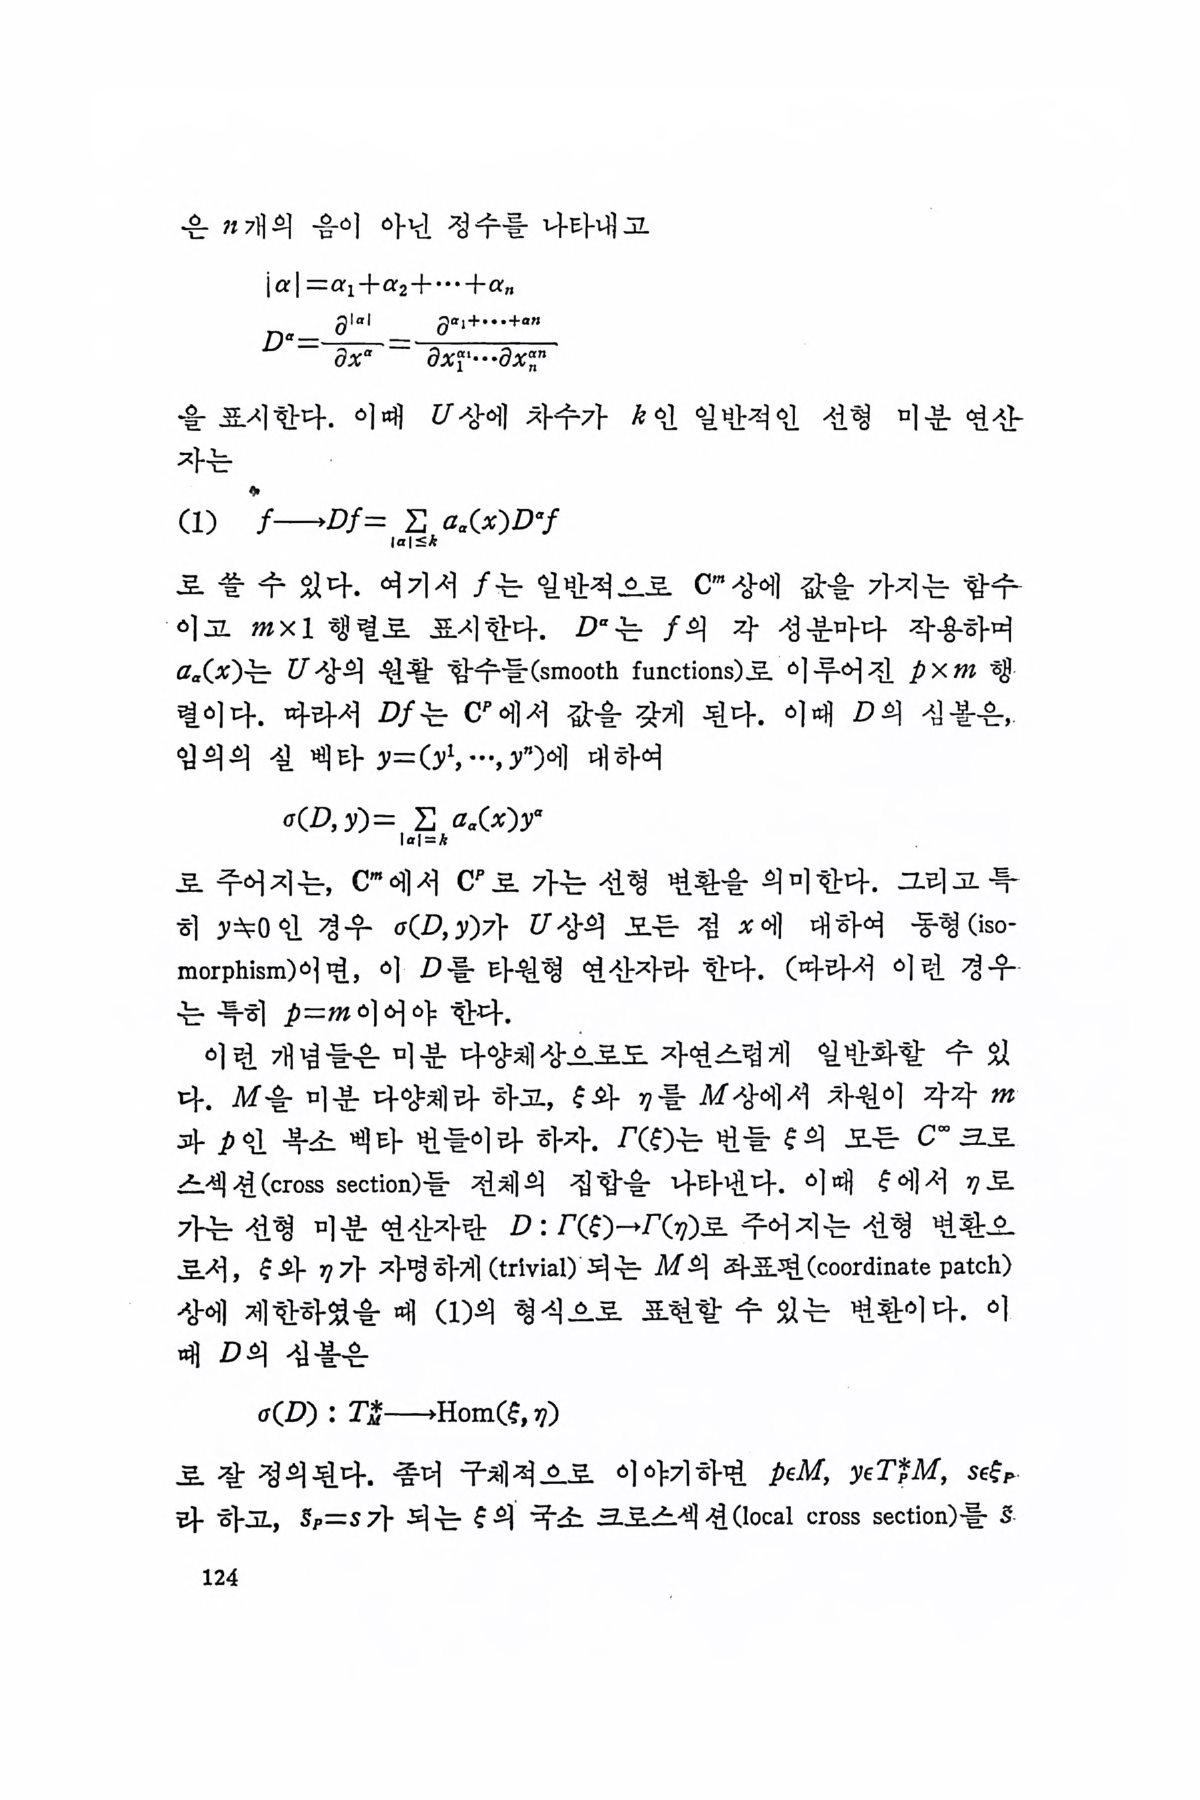 은 n개의 음이 아닌 정수를 나타내고
|α|=α₁+α₂+⋯+αₙ
D^α=∂^|α|/∂x^α=∂^(α₁+⋯+αn)/∂x₁^α₁⋯∂xₙ^αn
을 표시한다. 이때 U상에 차수가 k인 일반적인 선형 미분 연산
자는
(1) f⟶Df=∑_{|α|≤k} a_α(x)D^αf
로 쓸 수 있다. 여기서 f는 일반적으로 C^m상에 값을 가지는 함수
이고 m×1 행렬로 표시한다. D^α는 f의 각 성분마다 작용하며
a_α(x)는 U상의 원활 함수들(smooth functions)로 이루어진 p×m 행
렬이다. 따라서 Df는 C^p에서 값을 갖게 된다. 이때 D의 심볼은,
임의의 실 벡타 y=(y¹,⋯, yⁿ)에 대하여
σ(D, y)=∑_{|α|=k} a_α(x)y^α
로 주어지는, C^m에서 C^p로 가는 선형 변환을 의미한다. 그리고 특
히 y≒0인 경우 σ(D, y)가 U상의 모든 점 x에 대하여 동형(iso-
morphism)이면, 이 D를 타원형 연산자라 한다. (따라서 이런 경우
는 특히 p=m이어야 한다.
이런 개념들은 미분 다양체상으로도 자연스럽게 일반화할 수 있
다. M을 미분 다양체라 하고, ξ와 η를 M상에서 차원이 각각 m
과 p인 복소 벡타 번들이라 하자. Γ(ξ)는 번들 ξ의 모든 C^∞ 크로
스섹션(cross section)들 전체의 집합을 나타낸다. 이때 ξ에서 η로
가는 선형 미분 연산자란 D : Γ(ξ)→Γ(η)로 주어지는 선형 변환으
로서, ξ와 η가 자명하게(trivial) 되는 M의 좌표편(coordinate patch)
상에 제한하였을 때 (1)의 형식으로 표현할 수 있는 변환이다. 이
때 D의 심볼은
σ(D) : T*_M⟶Hom(ξ, η)
로 잘 정의된다. 좀더 구체적으로 이야기하면 pϵM, yϵT*_pM, sϵξ_P
라 하고, s̃_P=s가 되는 ξ의 국소 크로스섹션(local cross section)를 s̃
124